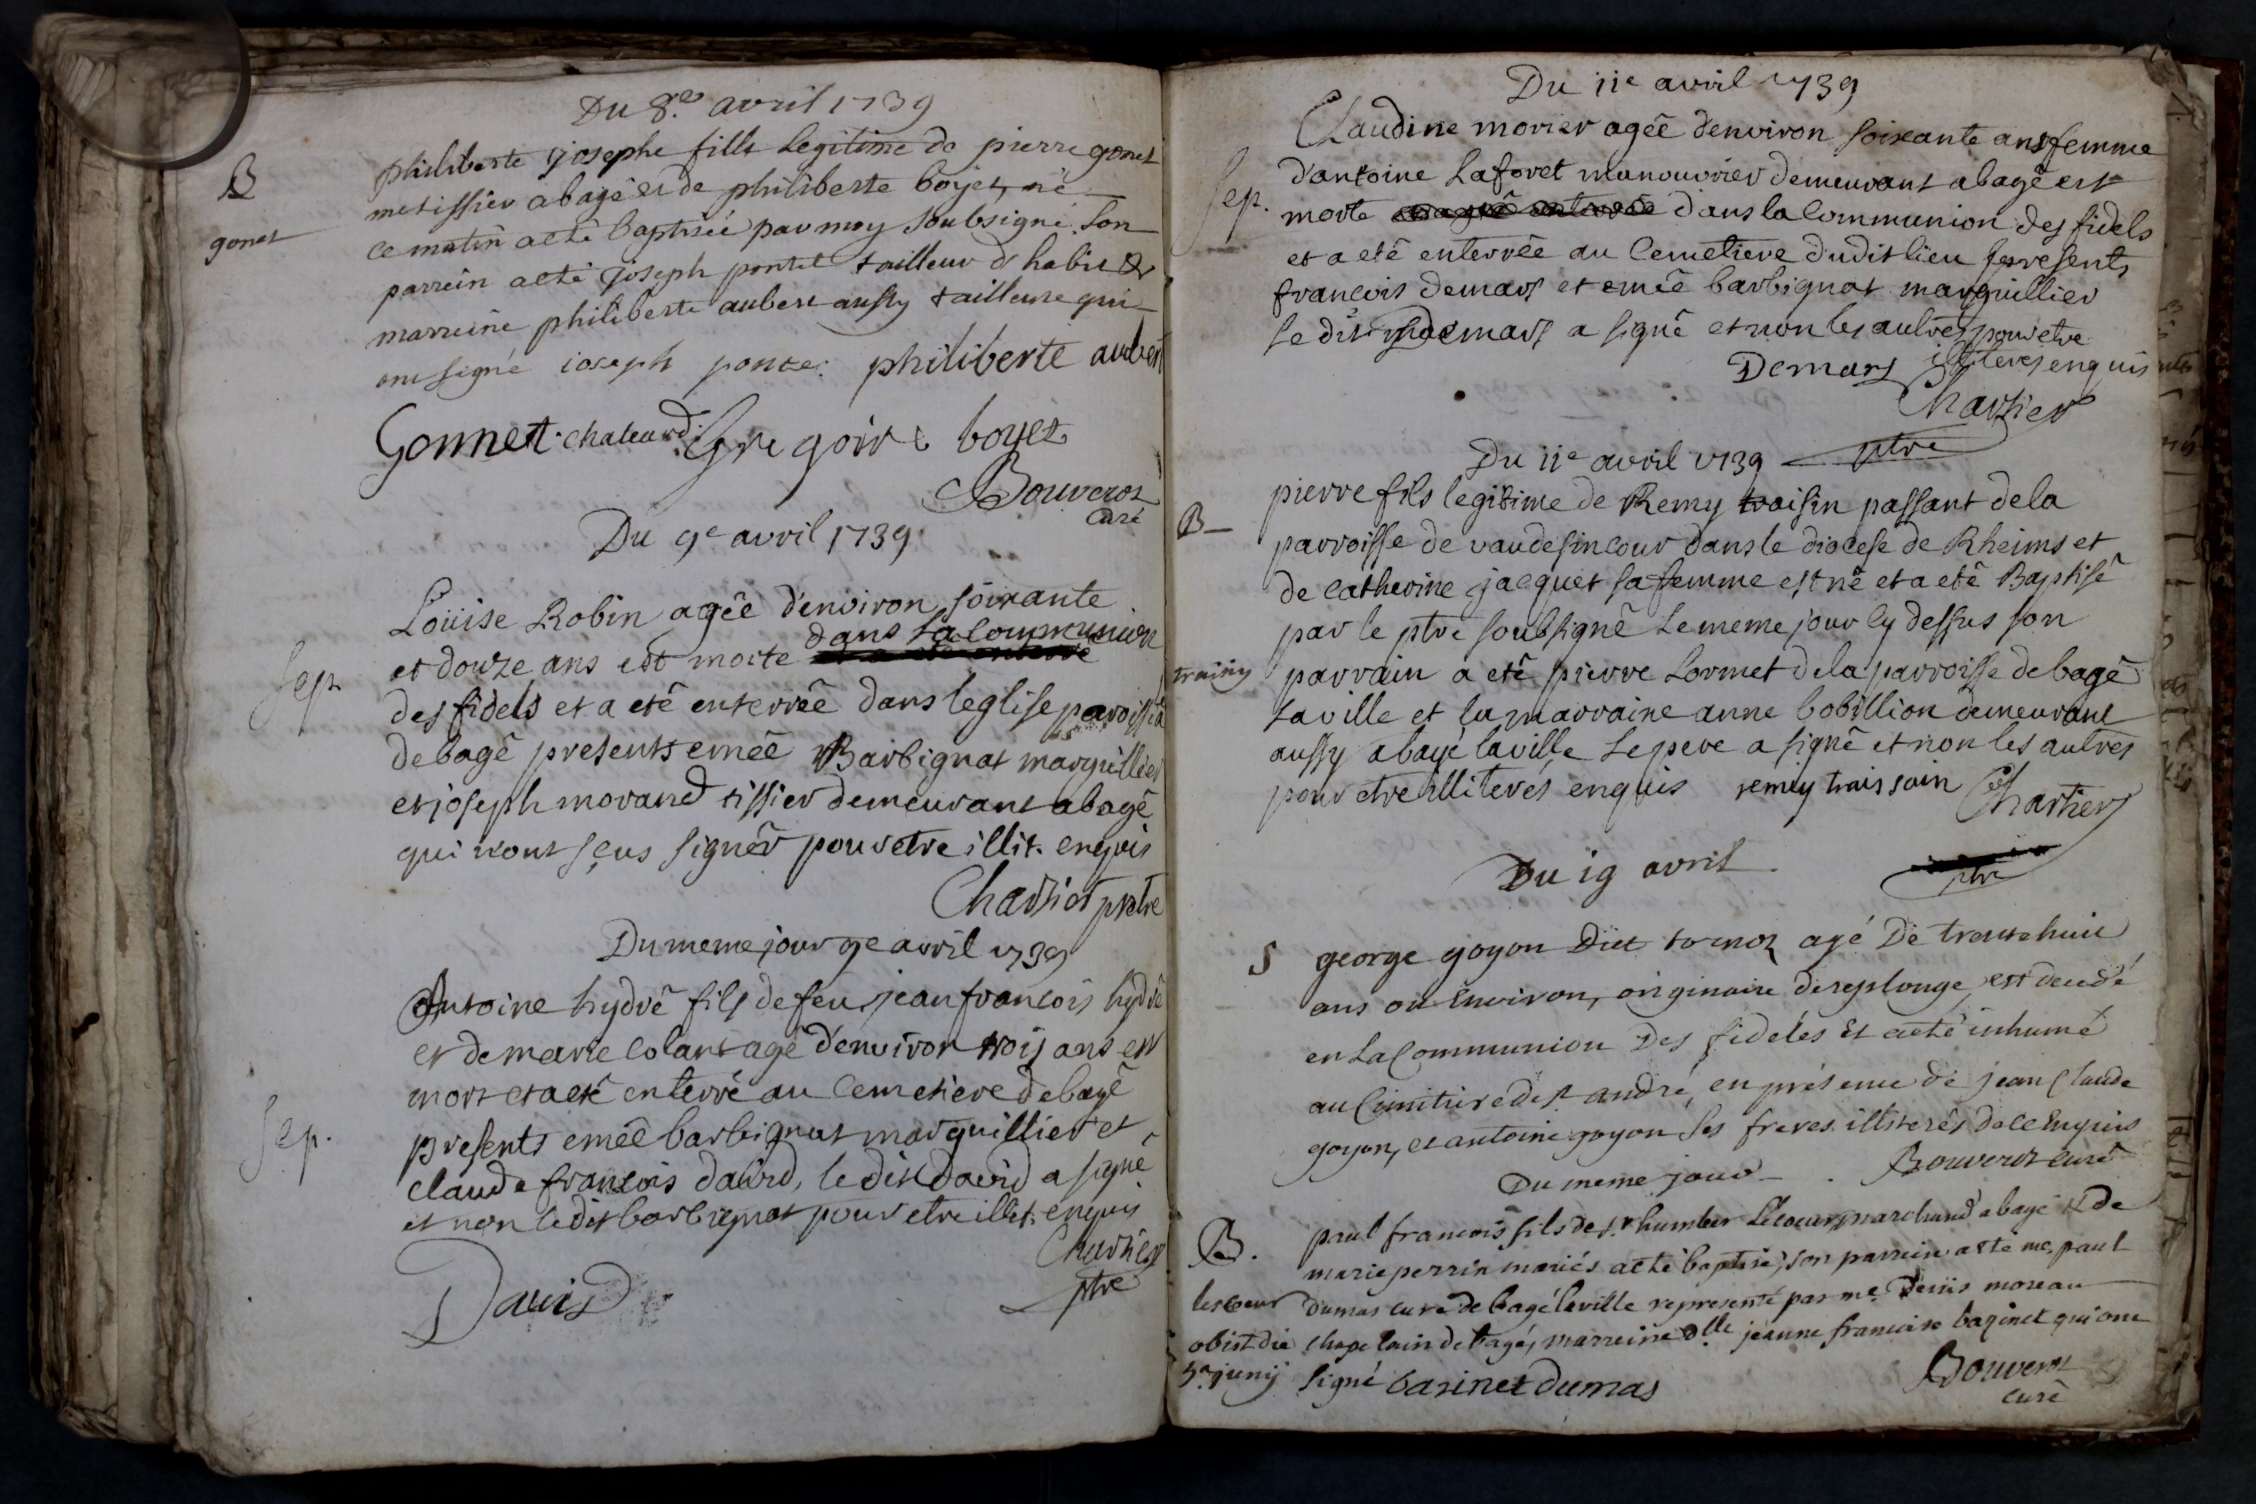 Du 8e avril 1739
B
gonet
philiberte josephe fille legitime de pierre gonet
metissier a bagé et de philiberte boyet, né
ce matin a eté baptisée par moy soubsigné. Son
parrein a eté joseph pontet tailleur d'habit et
marreine philiberte aubert aussy tailleuse qui
ont signé ioseph pontet philiberte aubert
Gonnet chateard Gregoire boyet
Bouverot
curé
Du 9e avril 1739
Sep
Loüise Robin agée d'environ soixante
et douze ans est morte dans la Communion
des fidels et a eté enterrée dans leglise paroissial
de bagé presents emée Barbignat marguillier
et joseph morand tissier demeurant a bagé
qui n'ont sçus signér pour etre illit. enquis
Chartier pretre
Du meme jour 9e avril 1739
Sep.
Antoine hydré fils de feu jean francois hydré
et de marie Colant agé d'environ trois ans est
mort et a eté enterré au Cemetiere de bagé
presents emée barbignat marguillier et
claude francois david, le dit david a signé
et non le dit barbignat pour etre illit. enquis
Chartier
ptre
David
Du 11e avril 1739
Sep.
Claudine morier agée d'environ soixante ans femme
d'antoine Laforet manouvrier demeurant a bagé est
morte dans la Communion des fidels
et a eté enterrée au Cemetiere dudit lieu presents
francois demars et emée barbignat marguillier
le dit demars a signé et non les autres pour etre
illiterés enquis
Demars
Chartier
ptre
Du 11e avril 1739
B
trainy
pierre fils legitime de Remy traisin passant de la
parroisse de vaudesincour dans le diocese de Rheims et
de catherine jacquet sa femme est né et a eté Baptisé
par le ptre soubsigné le meme jour cy dessus son
parrain a eté pierre Lormet de la parroisse de bagé
la ville et la marraine anne bobillion demeurant
aussy a bagé la ville le pere a signé et non les autres
pour etre illiterés enquis remy traissain Chartier
ptre
Du 19 avril
S
george goyon Dit agé De trente huit
ans ou Environ, originaire de replonge, est decedé
en La Communion Des fideles Et a eté inhumé
au Cimitiere de st andré, en présence de jean Claude
goyon, et antoine goyon ses freres illiterés de ce Enquis
Bouverot curé
Du meme jour
B.
lescoeur
obiit die
5a junij
paul francois fils de sr humber Lescoeur marchand a bagé et de
marie perrin mariés a eté baptisé, son parrein a eté me. paul
dumas curé de bagé la ville representé par me Denis moreau
chapelain de bagé, marreine dlle jeanne francoise bazinet qui ont
signé bazinet Dumas
Bouverot
curé